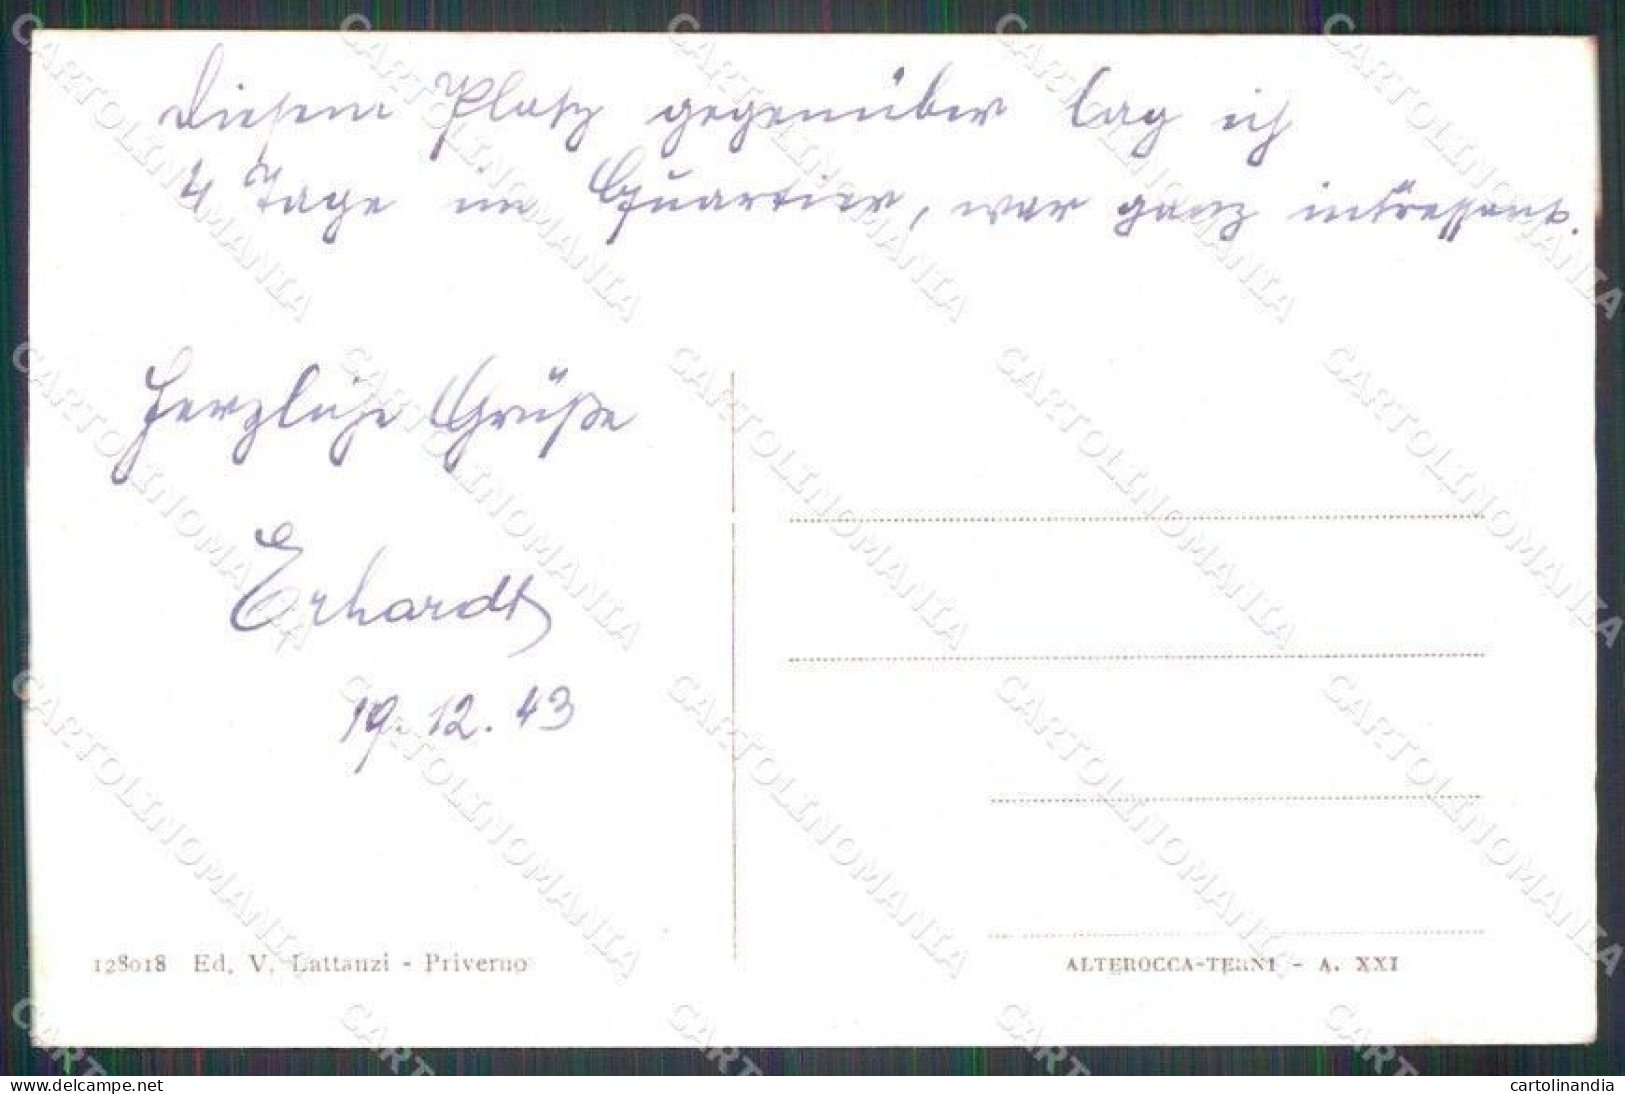 Diesem Platz gegenüber lag ich
4 Tage im Quartier, war ganz intressant.
Herzliche Grüße
Erhardt
19.12.43
128018 Ed. V. Lattanzi - Priverno
ALTEROCCA-TERNI - A. XXI
CARTOLINOMANIA
delcampe.net
cartolinandia